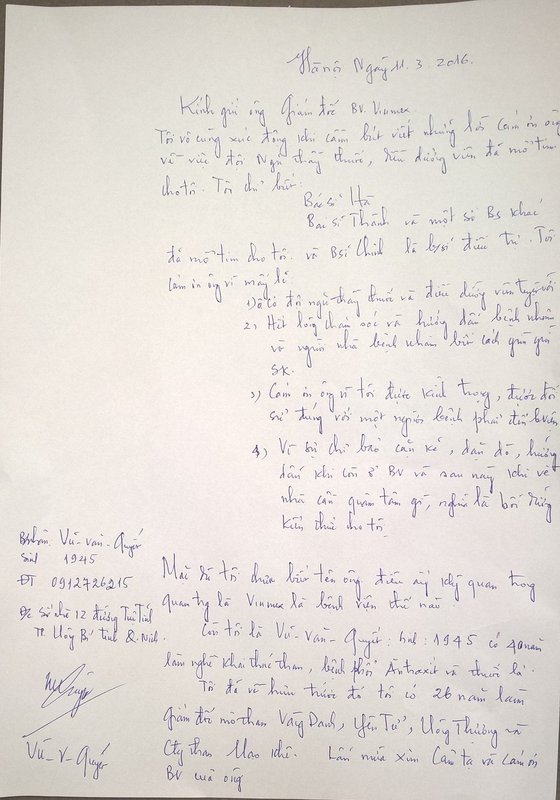 Hà nội Ngày 11.3.2016.
Kính gửi ông Giám đốc BV. Vinmec.
Tôi vô cùng xúc động khi cầm bút viết những lời cảm ơn ông
về việc đội Ngũ thầy thuốc, điều dưỡng viên đã mổ tim
cho tôi. Tôi chỉ biết:
Bác sĩ Hà
Bác sĩ Thành và một số Bs khác
đã mổ tim cho tôi. và Bsĩ Chính là b/sĩ điều trị. Tôi
cảm ơn ông vì mấy lẽ:
1) có đội ngũ thầy thuốc và điều dưỡng viên tuyệt vời
2) Hết lòng chăm sóc và hướng dẫn bệnh nhân
và người nhà bệnh nhân biết cách giữ gìn
SK.
3) Cảm ơn ông vì tôi được kính trọng, được đối
xử đúng với một người bệnh phải đến b.viện
4) Vì sự chỉ bảo cặn kẽ, dặn dò, hướng
dẫn khi còn ở BV và sau này khi về
nhà cần quan tâm gì, nghĩa là bồi dưỡng
kiến thức cho tôi.
Mặc dù tôi chưa biết tên ông điều ấy không quan trọng
quan trọng là Vinmec là bệnh viện thế nào.
Còn tôi là Vũ-văn-Quyết: sinh: 1945 có 40 năm
làm nghề khai thác than, bệnh phổi Antraxit và thuốc lá.
Tôi đã về hưu trước đó tôi có 26 năm làm
Giám đốc mỏ than Vàng Danh, Yên Tử, Uông Thượng và
Cty than Mạo Khê. Lần nữa xin cảm tạ và cảm ơn
BV của ông
Bệnh nhân. Vũ-văn-Quyết
Sinh 1945
ĐT 0912726215
Đc Số nhà 12 đường Tuệ Tĩnh
TP Uông Bí tỉnh Q. Ninh.
Vũ-V-Quyết